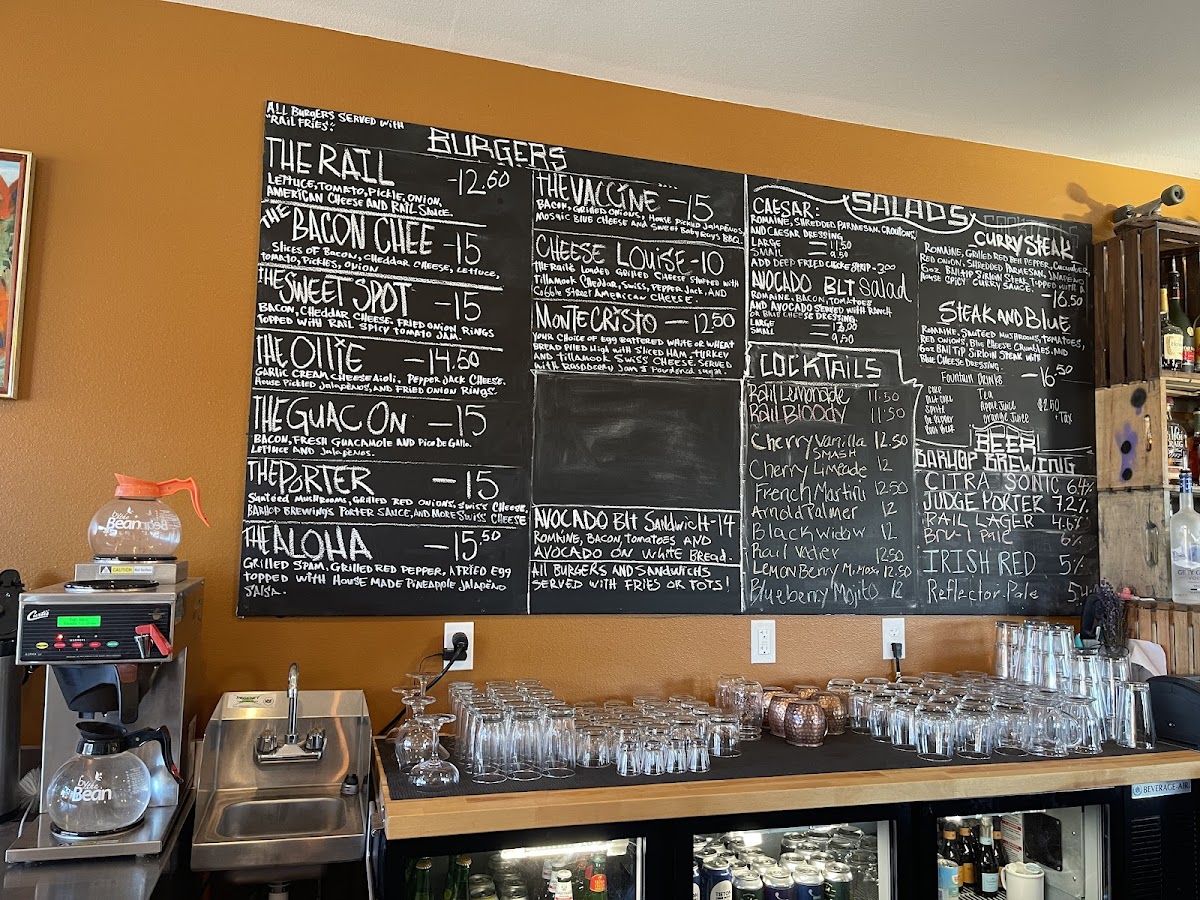 ALL BURGERS SERVED WITH
"RAIL FRIES":
BURGERS
THE RAIL -12.60
LETTUCE, TOMATO, PICKLE, ONION,
AMERICAN CHEESE AND RAIL SAUCE.
THE BACON CHEE -15
SLICES OF BACON, CHEDDAR CHEESE, LETTUCE,
TOMATO, PICKLES, ONION
THE SWEET SPOT -15
BACON, CHEDDAR CHEESE, FRIED ONION RINGS
TOPPED WITH RAIL SPICY TOMATO JAM.
THE OLLIE -14.50
GARLIC CREAM CHEESE AIOLI, PEPPER JACK CHEESE,
HOUSE PICKLED JALAPEÑOS, AND FRIED ONION RINGS.
THE GUAC ON -15
BACON, FRESH GUACAMOLE AND PICO DE GALLO.
LETTUCE AND JALAPEÑOS.
THE PORTER -15
SAUTÉED MUSHROOMS, GRILLED RED ONIONS, SWISS CHEESE,
BARHOP BREWING'S PORTER SAUCE, AND MORE SWISS CHEESE
THE ALOHA -15.50
GRILLED SPAM, GRILLED RED PEPPER, A FRIED EGG
TOPPED WITH HOUSE MADE PINEAPPLE JALAPEÑO
SALSA.
THE VACCINE -15
BACON, GRILLED ONIONS, HOUSE PICKLED JALAPEÑOS,
MOSAIC BLUE CHEESE AND SWEET BABY RAY'S BBQ.
CHEESE LOUISE -10
THE RAIL'S LOADED GRILLED CHEESE STARTED WITH
TILLAMOOK CHEDDAR, SWISS, PEPPER JACK, AND
COBBLE STREET AMERICAN CHEESE.
MONTE CRISTO - 12.50
YOUR CHOICE OF EGG BATTERED WHITE OR WHEAT
BREAD PILED HIGH WITH SLICED HAM, TURKEY
AND TILLAMOOK SWISS CHEESE. SERVED
WITH RASPBERRY JAM & POWDERED SUGAR.
AVOCADO Blt SANDWICH -14
ROMAINE, BACON, TOMATOES AND
AVOCADO ON WHITE BREAD.
ALL BURGERS AND SANDWICHS
SERVED WITH FRIES OR TOTS!
SALADS
CAESAR:
ROMAINE, SHREDDED PARMESAN, CROUTONS,
AND CAESAR DRESSING
LARGE - 11.50
SMALL - 9.50
ADD DEEP FRIED CHICKEN STRIP - 3.00
AVOCADO BLT Salad
ROMAINE, BACON, TOMATOES
AND AVOCADO SERVED WITH RANCH
OR BLUE CHEESE DRESSING.
LARGE - 13.00
SMALL - 9.50
COCKTAILS
Rail Lemonade 11.50
Rail Bloody 11.50
Cherry Vanilla 12.50
SMASH
Cherry Limeade 12
French Martini 12.50
Arnold Palmer 12
Black widow 12
Rail 12.50
Lemon Berry Mimosa 12.50
Blueberry Mojito 12
CURRY STEAK
ROMAINE, GRILLED RED BELL PEPPER, CUCUMBER,
RED ONION, SHREDDED PARMESAN,
6oz BALL TIP SIRLOIN STEAK TOPPED WITH A
HOUSE SPICY CURRY SAUCE.
-16.50
STEAK AND BLUE
ROMAINE, SAUTÉED MUSHROOMS, TOMATOES,
RED ONIONS, BLUE CHEESE CRUMBLES, AND
6oz BALL TIP SIRLOIN STEAK WITH
BLUE CHEESE DRESSING.
-16.50
Fountain Drinks
Coke
Diet Coke
Sprite
Dr Pepper
Root Beer
Tea
Apple Juice
Orange Juice
$2.50
+ Tax
BEER!
BARHOP BREWING
CITRA SONIC 6.4%
JUDGE PORTER 7.2%
RAIL LAGER 4.6%
Bru-1 Pale 6%
IRISH RED 5%
Reflector Pale 5%
Bean
Bean
CAUTION
Curtis
BEVERAGE-AIR